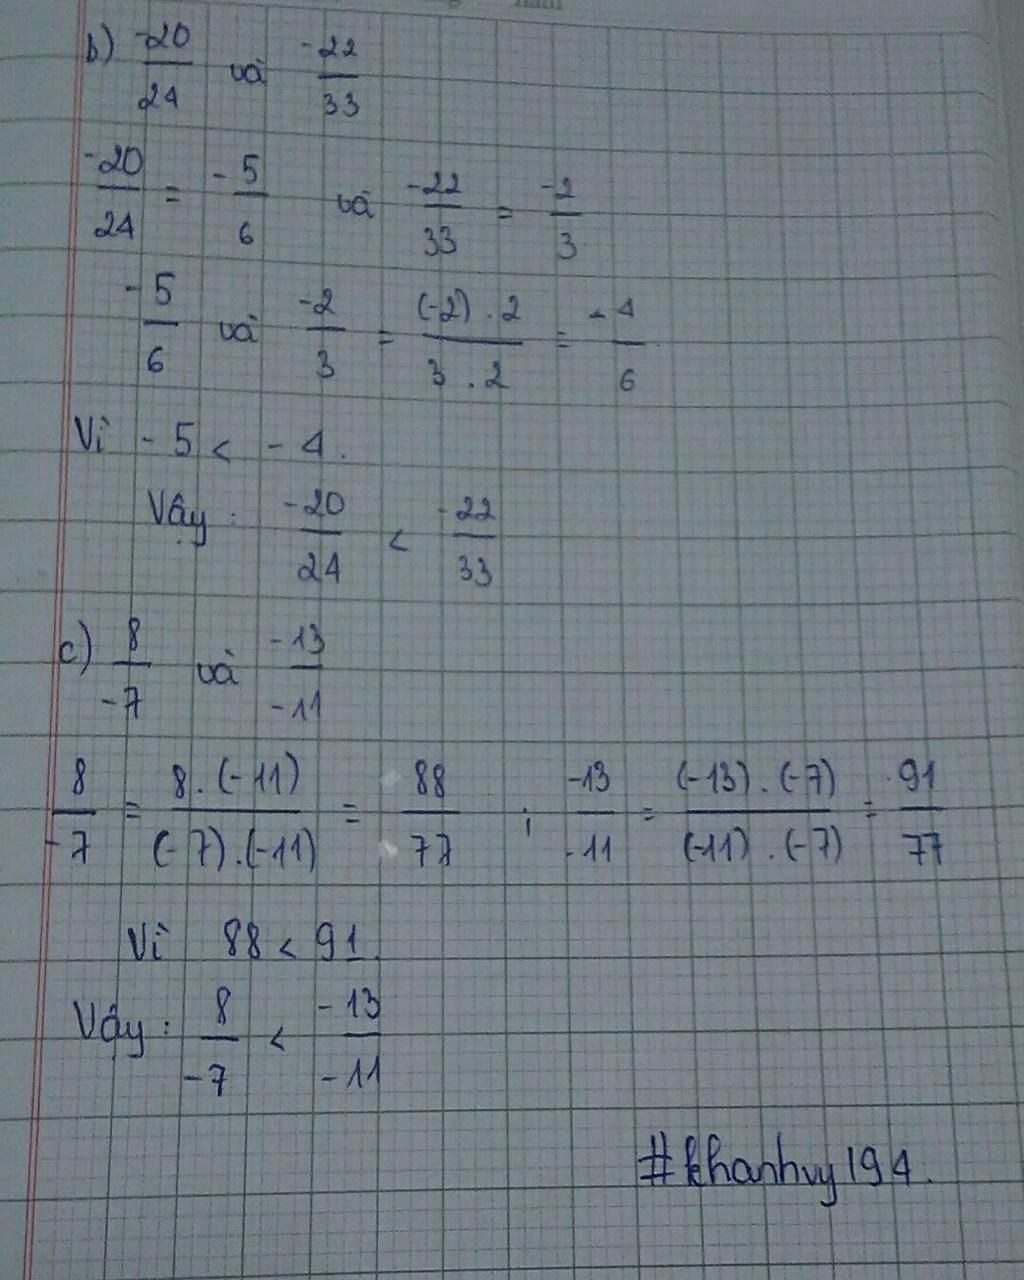 b) -20/24 và -22/33
-20/24 = -5/6 và -22/33 = -2/3
-5/6 và -2/3 = (-2) . 2/3 . 2 = -4/6
Vì -5 < -4.
Vậy : -20/24 < -22/33
c) 8/-7 và -13/-11
8/-7 = 8 . (-11)/(-7) . (-11) = 88/77 ; -13/-11 = (-13) . (-7)/(-11) . (-7) = 91/77
Vì 88 < 91.
Vậy : 8/-7 < -13/-11
#khanhvy194.